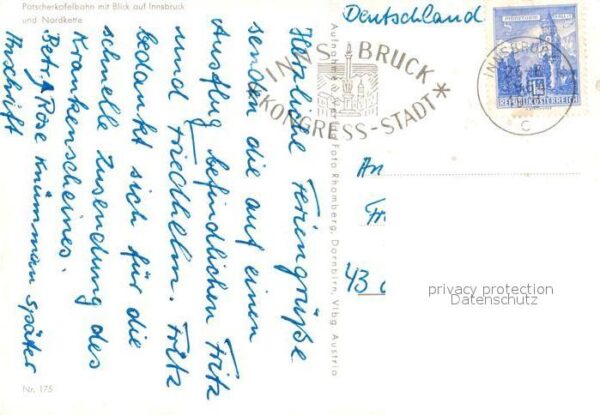 Patscherkofelbahn mit Blick auf Innsbruck
und Nordkette
Herzliche Feriengrüße
senden die auf einen
Ausflug befindlichen Fritz
und Friedhelm. Fritz
bedankt sich für die
schnelle Zusendung des
Krankenscheines.
Betr. Rose Krümman später
Inschrift
Nr. 175
Aufnahme u. Verlag Foto Rhomberg, Dornbirn, Vlbg. Austria
INNSBRUCK
*KONGRESS-STADT*
Deutschland
REPUBLIK ÖSTERREICH
INNSBRUCK
C
An
43
privacy protection
Datenschutz